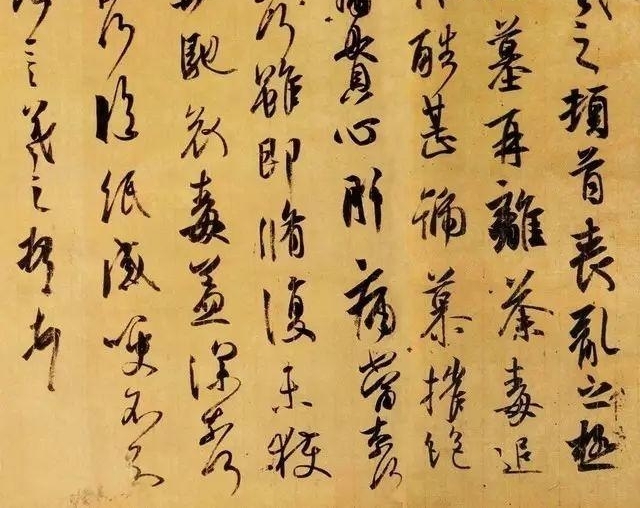 之頓首喪亂之極
墓再離荼毒追
酷甚號慕摧絕
痛貫心肝痛當柰何
何雖即脩復未獲
馳哀毒益深柰何
何臨紙感哽不知
何言羲之頓首